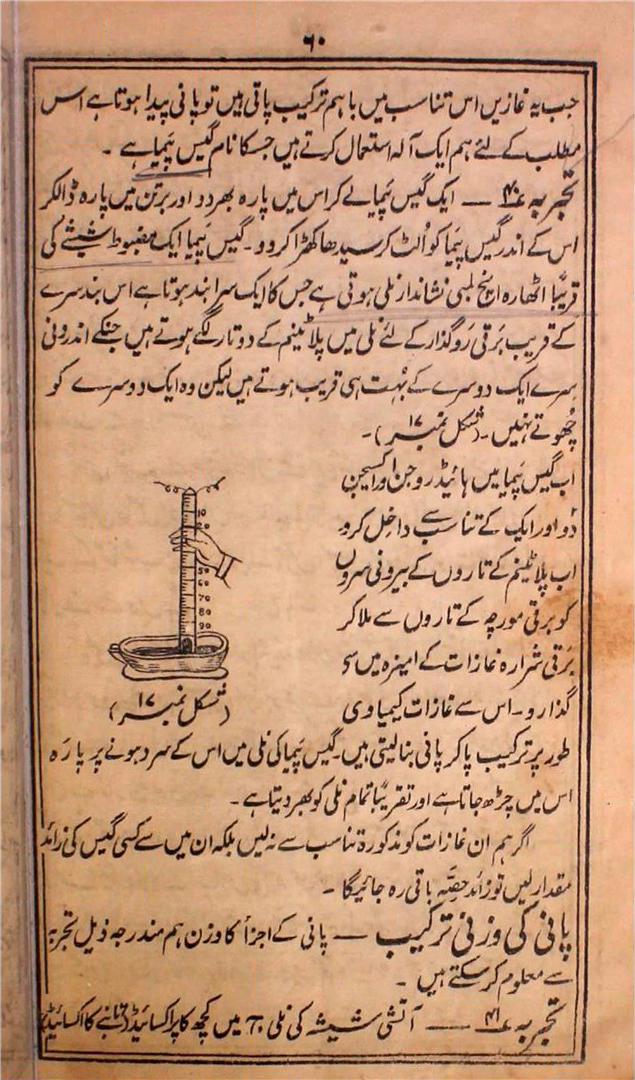 ۶۰
جب یہ غازیں اس تناسب میں باہم ترکیب پاتی ہیں تو پانی پیدا ہوتا ہے اس
مطلب کے لئے ہم ایک آلہ استعمال کرتے ہیں جسکا نام گیس پَیما ہے ۔
تجربہ ۴۰ — ایک گیس پَیما لے کر اس میں پارہ بھر دو اور برتن میں پارہ ڈالکر
اس کے اندر گیس پَیما کو اُلٹ کر سیدھا کھڑا کر دو ۔ گیس پَیما ایک مضبوط شیشے کی
قریبًا اٹھارہ اِنچ لمبی نشاندار نلی ہوتی ہے جس کا ایک سرا بند ہوتا ہے اس بند سرے
کے قریب بَرقی رَو گذار کے لئے نلی میں پلاٹینم کے دو تار لگے ہوتے ہیں جنکے اندرونی
سرے ایک دوسرے کے بہُت ہی قریب ہوتے ہیں لیکن وہ ایک دوسرے کو
چُھوتے نہیں ۔ (شکل نمبر ۱۷) ۔
اب گیس پَیما میں ہائیڈروجن اور اکسیجن
دُو اور ایک کے تناسب سے داخِل کرو
اب پلاٹینم کے تاروں کے بیرونی سروں
کو برقی مورچہ کے تاروں سے ملا کر
بَرقی شرارہ غازات کے امیزہ میں سے
گذارو ۔ اس سے غازات کیمیاوی
10
20
50
60
70
80
90
(شکل نمبر ۱۷)
طور پر ترکیب پا کر پانی بنا لیتی ہیں ۔ گیس پَیما کی نلی میں اس کے سرد ہونے پر پارَہ
اس میں چڑھ جاتا ہے اور تقریبًا تمام نلی کو بھر دیتا ہے ۔
اگر ہم ان غازات کو مذکورۃ تناسب سے نہ لیں بلکہ ان میں سے کسی گیس کی زائد
مقدار لیں تو زائد حصّہ باقی رہ جائیگا ۔
پانی کی وزنی ترکیب — پانی کے اجزأ کا وزن ہم مندرجہ ذیل تجربہ
سے معلوم کر سکتے ہیں ۔
تجربہ ۴۱ — آتشی شیشہ کی نلی میں کچھ کاپراکسائیڈ (تانبے کا اکسائیڈ)